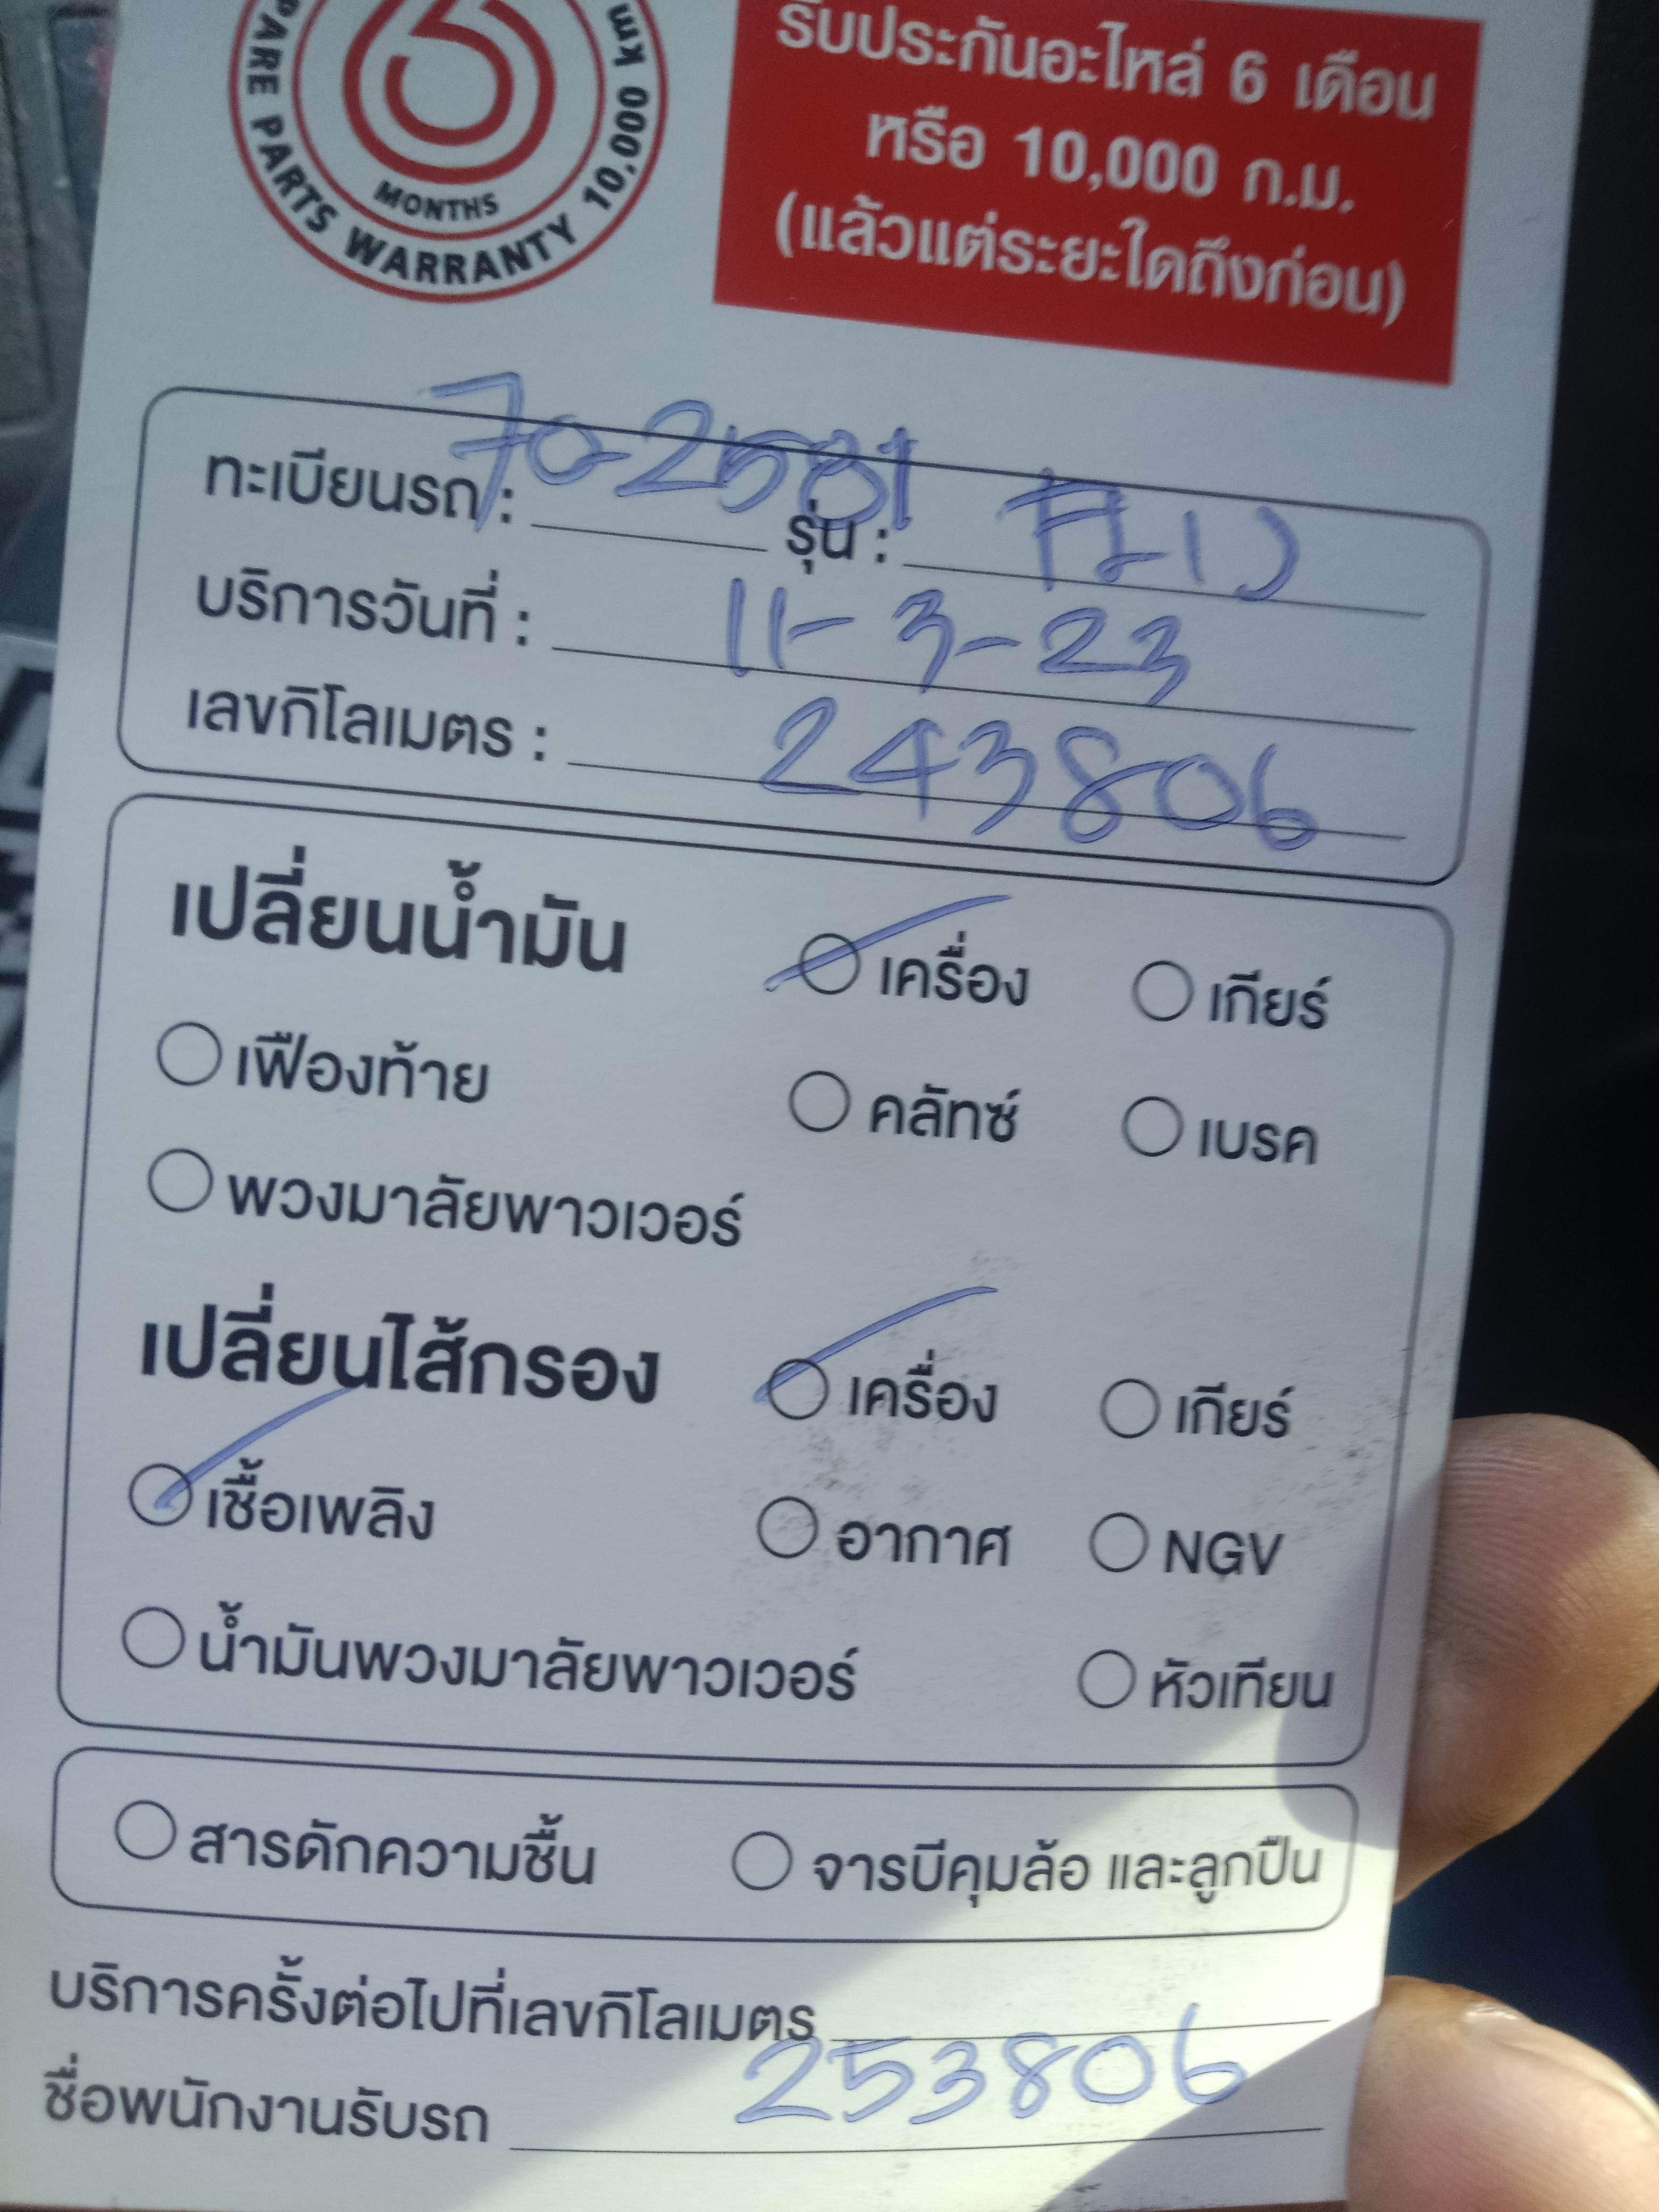 6
MONTHS
PARE PARTS WARRANTY 10,000 km
รับประกันอะไหล่ 6 เดือน
หรือ 10,000 ก.ม.
(แล้วแต่ระยะใดถึงก่อน)
ทะเบียนรถ : 70-2581 รุ่น :
บริการวันที่ : 11-3-23
เลขกิโลเมตร : 243806
เปลี่ยนน้ำมัน เครื่อง เกียร์
เฟืองท้าย คลัทซ์ เบรค
พวงมาลัยพาวเวอร์
เปลี่ยนไส้กรอง เครื่อง เกียร์
เชื้อเพลิง อากาศ NGV
น้ำมันพวงมาลัยพาวเวอร์ หัวเทียน
สารดักความชื้น จารบีคุมล้อ และลูกปืน
บริการครั้งต่อไปที่เลขกิโลเมตร 253806
ชื่อพนักงานรับรถ